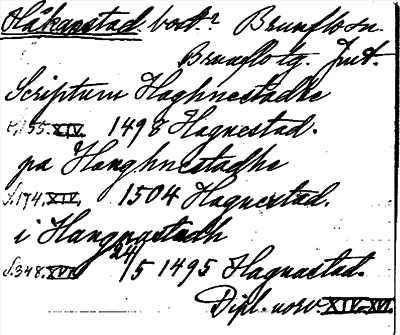 Håkanstad bort.? Brunflo sn.
Brunflo tg. Jmt.
Scriptum Haghnestadhe
s. 155. XIV. 1498 Hagnestad.
pa Hanghnestadhe
s. 174. XIV. 1504 Hagnestad.
i Hangnastadh
s. 348. XVI. 24/5 1495 Hagnastad.
Dipl. norv. XIV-XVI.